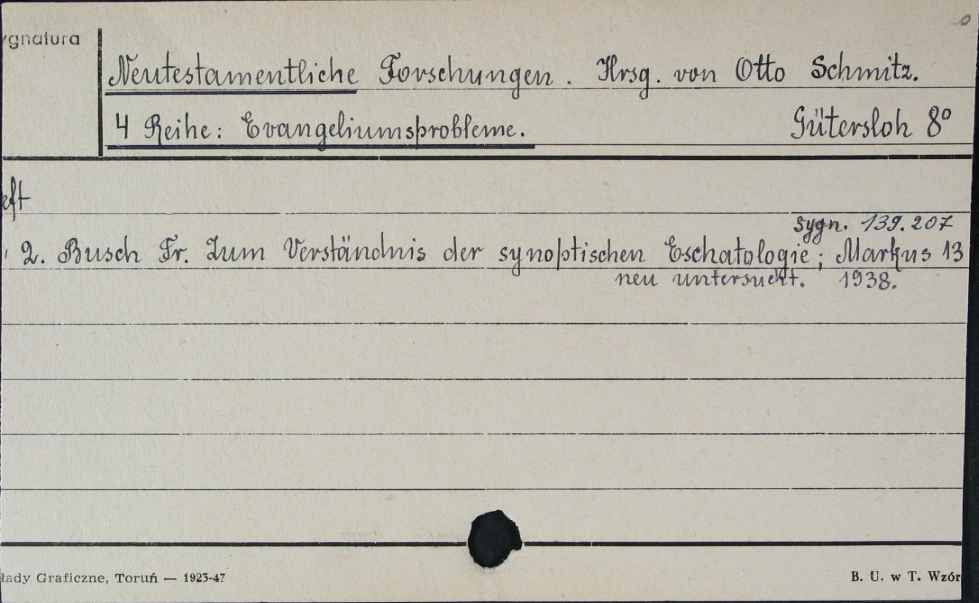 ygnatura
Neutestamentliche Forschungen. Hrsg. von Otto Schmitz.
4 Reihe: Evangeliumsprobleme. Gütersloh 8º
eft
sygn. 139.207
2. Busch Fr. Zum Verständnis der synoptischen Eschatologie; Markus 13
neu untersucht. 1938.
łady Graficzne, Toruń — 1923-47
B. U. w T. Wzór